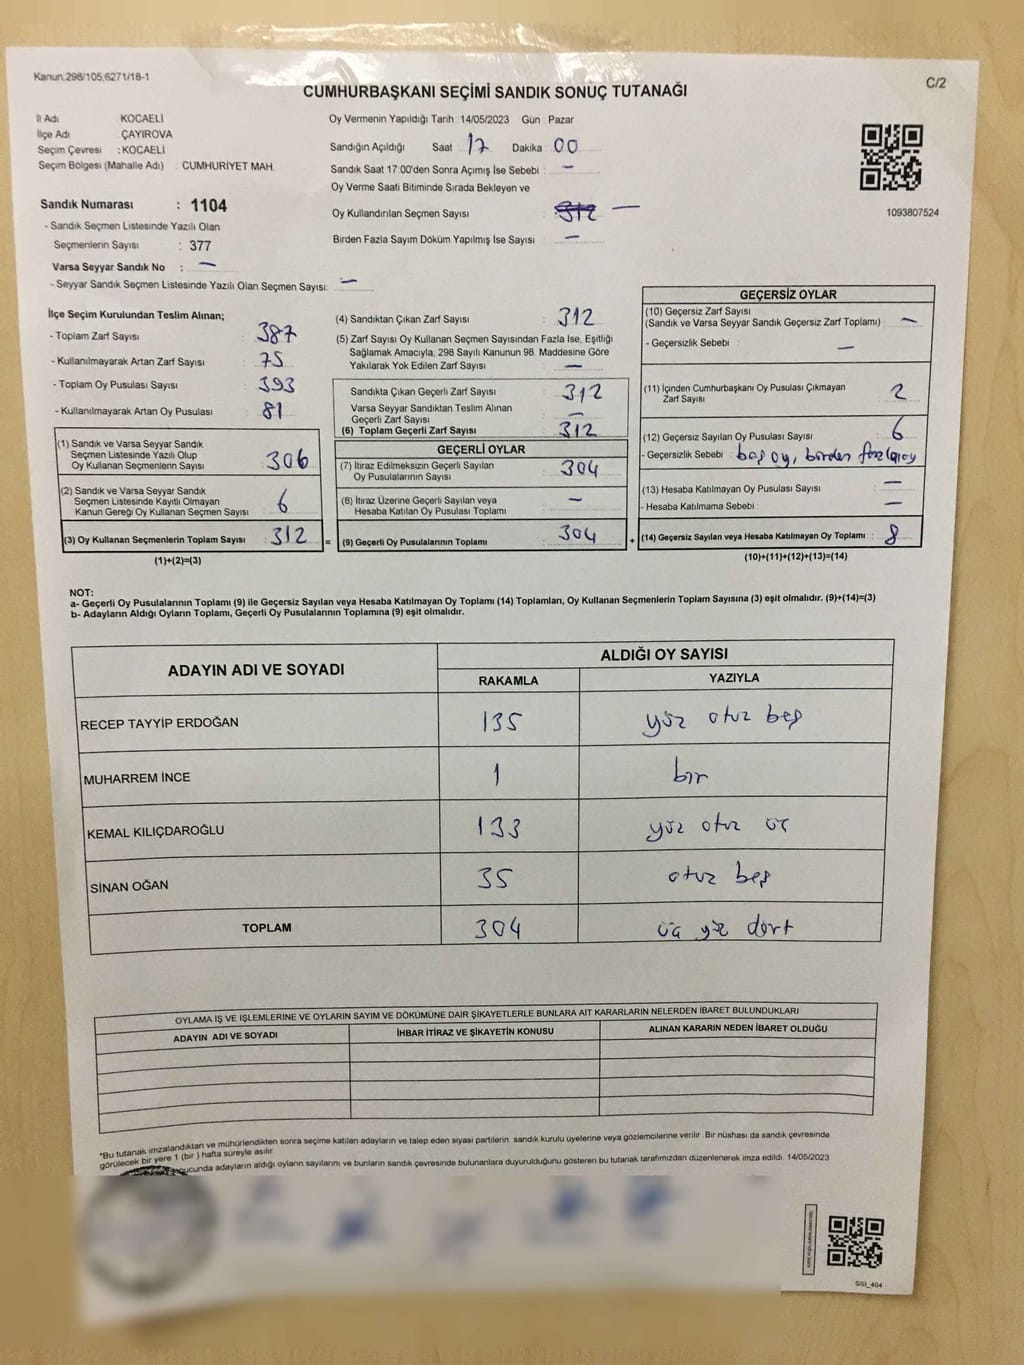 Kanun.298/105,6271/18-1
C/2
CUMHURBAŞKANI SEÇİMİ SANDIK SONUÇ TUTANAĞI
İl Adı KOCAELİ
İlçe Adı ÇAYIROVA
Seçim Çevresi : KOCAELİ
Seçim Bölgesi (Mahalle Adı) : CUMHURİYET MAH.
Sandık Numarası : 1104
- Sandık Seçmen Listesinde Yazılı Olan
Seçmenlerin Sayısı : 377
Varsa Seyyar Sandık No : —
- Seyyar Sandık Seçmen Listesinde Yazılı Olan Seçmen Sayısı: —
Oy Vermenin Yapıldığı Tarih : 14/05/2023 Gün : Pazar
Sandığın Açıldığı Saat 17 Dakika 00
Sandık Saat 17:00'den Sonra Açımış İse Sebebi : —
Oy Verme Saati Bitiminde Sırada Bekleyen ve
Oy Kullandırılan Seçmen Sayısı : 312 —
Birden Fazla Sayım Döküm Yapılmış İse Sayısı : —
1093807524
İlçe Seçim Kurulundan Teslim Alınan;
- Toplam Zarf Sayısı : 387
- Kullanılmayarak Artan Zarf Sayısı : 75
- Toplam Oy Pusulası Sayısı : 393
- Kullanılmayarak Artan Oy Pusulası : 81
(1) Sandık ve Varsa Seyyar Sandık
Seçmen Listesinde Yazılı Olup
Oy Kullanan Seçmenlerin Sayısı : 306
(2) Sandık ve Varsa Seyyar Sandık
Seçmen Listesinde Kayıtlı Olmayan
Kanun Gereği Oy Kullanan Seçmen Sayısı : 6
(3) Oy Kullanan Seçmenlerin Toplam Sayısı : 312 =
(1)+(2)=(3)
(4) Sandıktan Çıkan Zarf Sayısı : 312
(5) Zarf Sayısı Oy Kullanan Seçmen Sayısından Fazla İse, Eşitliği
Sağlamak Amacıyla, 298 Sayılı Kanunun 98. Maddesine Göre
Yakılarak Yok Edilen Zarf Sayısı : —
Sandıkta Çıkan Geçerli Zarf Sayısı : 312
Varsa Seyyar Sandıktan Teslim Alınan
Geçerli Zarf Sayısı : —
(6) Toplam Geçerli Zarf Sayısı : 312
GEÇERLİ OYLAR
(7) İtiraz Edilmeksizin Geçerli Sayılan
Oy Pusulalarının Sayısı : 304
(8) İtiraz Üzerine Geçerli Sayılan veya
Hesaba Katılan Oy Pusulası Toplamı : —
(9) Geçerli Oy Pusulalarının Toplamı : 304 +
GEÇERSİZ OYLAR
(10) Geçersiz Zarf Sayısı
(Sandık ve Varsa Seyyar Sandık Geçersiz Zarf Toplamı) : —
- Geçersizlik Sebebi : —
(11) İçinden Cumhurbaşkanı Oy Pusulası Çıkmayan
Zarf Sayısı : 2
(12) Geçersiz Sayılan Oy Pusulası Sayısı : 6
- Geçersizlik Sebebi : boş oy, birden fazla oy
(13) Hesaba Katılmayan Oy Pusulası Sayısı : —
- Hesaba Katılmama Sebebi : —
(14) Geçersiz Sayılan veya Hesaba Katılmayan Oy Toplamı : 8
(10)+(11)+(12)+(13)=(14)
NOT:
a- Geçerli Oy Pusulalarının Toplamı (9) ile Geçersiz Sayılan veya Hesaba Katılmayan Oy Toplamı (14) Toplamları, Oy Kullanan Seçmenlerin Toplam Sayısına (3) eşit olmalıdır. (9)+(14)=(3)
b- Adayların Aldığı Oyların Toplamı, Geçerli Oy Pusulalarının Toplamına (9) eşit olmalıdır.
ADAYIN ADI VE SOYADI
ALDIĞI OY SAYISI
RAKAMLA YAZIYLA
RECEP TAYYİP ERDOĞAN 135 yüz otuz beş
MUHARREM İNCE 1 bir
KEMAL KILIÇDAROĞLU 133 yüz otuz üç
SİNAN OĞAN 35 otuz beş
TOPLAM 304 üç yüz dört
OYLAMA İŞ VE İŞLEMLERİNE VE OYLARIN SAYIM VE DÖKÜMÜNE DAİR ŞİKAYETLERLE BUNLARA AİT KARARLARIN NELERDEN İBARET BULUNDUKLARI
ADAYIN ADI VE SOYADI İHBAR İTİRAZ VE ŞİKAYETİN KONUSU ALINAN KARARIN NEDEN İBARET OLDUĞU
*Bu tutanak imzalandıktan ve mühürlendikten sonra seçime katılan adayların ve talep eden siyasi partilerin sandık kurulu üyelerine veya gözlemcilerine verilir. Bir nüshası da sandık çevresinde
görülecek bir yere 1 (bir) hafta süreyle asılır.
ucunda adayların aldığı oyların sayılarını ve bunların sandık çevresinde bulunanlara duyurulduğunu gösteren bu tutanak tarafımızdan düzenlenerek imza edildi. 14/05/2023
SSI_404